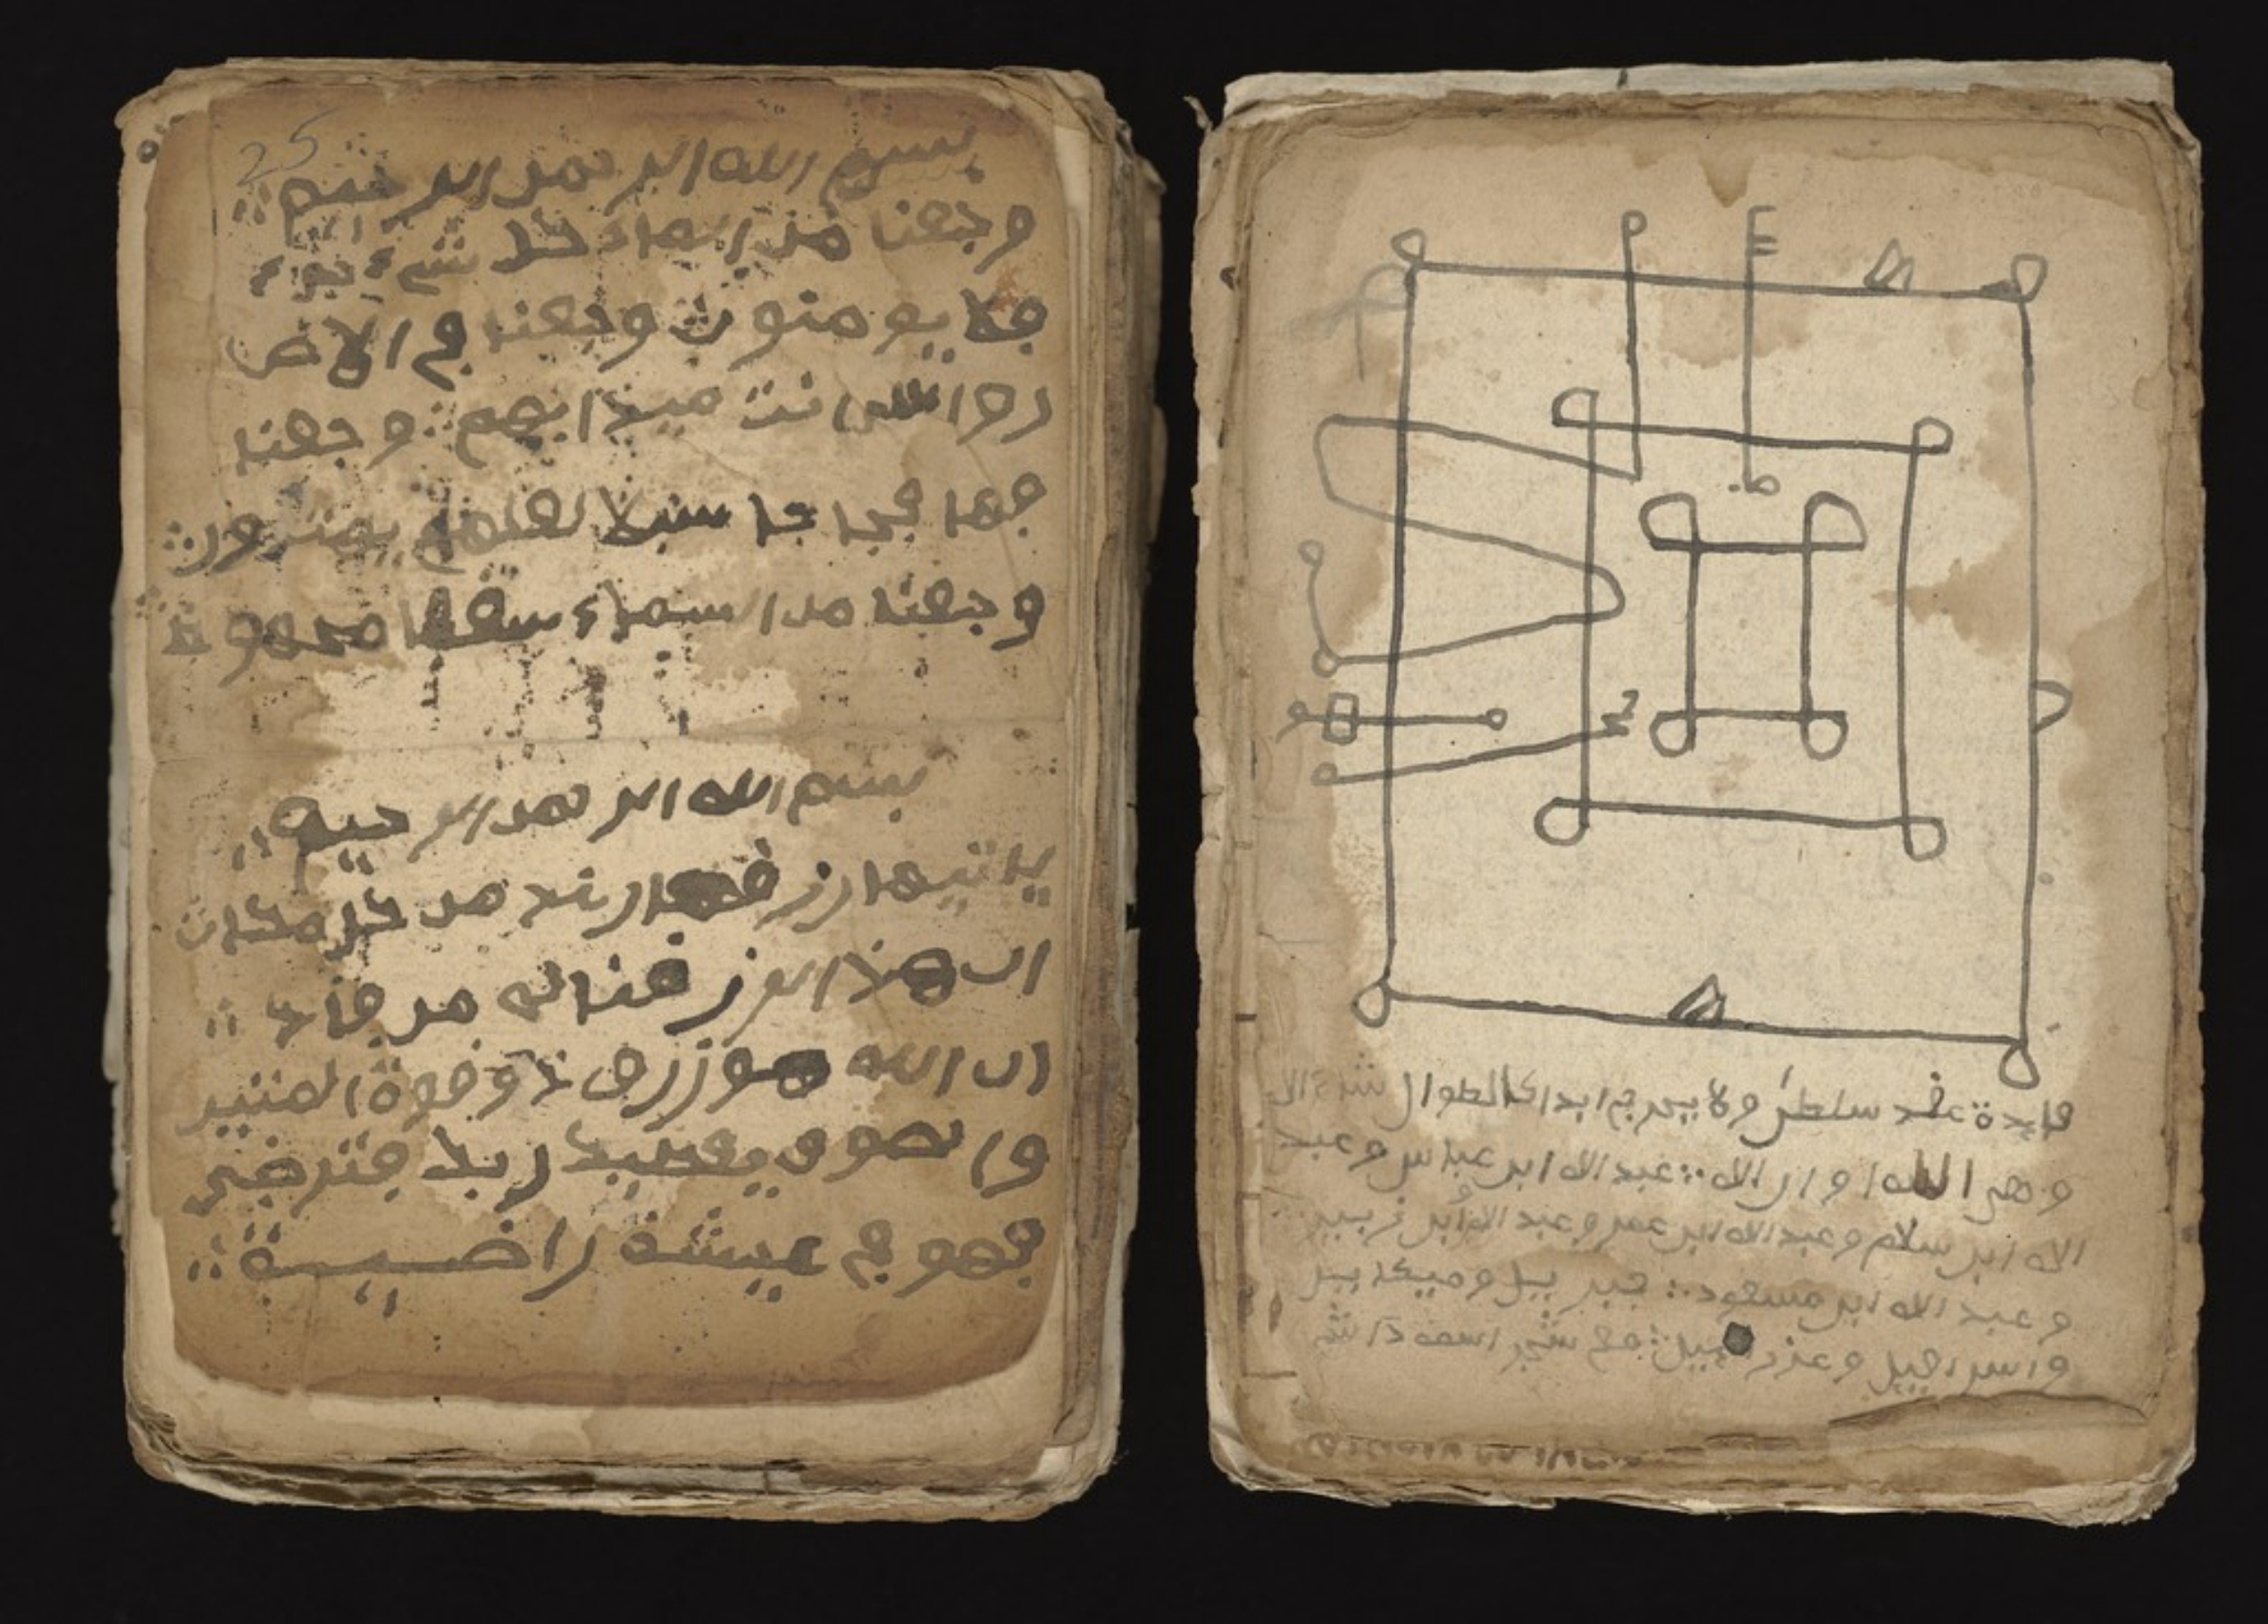 25
بسم الله الرحمن الرحيم
وجعلنا من الماء كل شيء حي
فلا يومنون وجعلنا في الارض
رواسي ان تميد بهم وجعلنا
فيها فجاجا سبلا لعلهم يهتدون
وجعلنا من السماء سقفا محفوظا
بسم الله الرحمن الرحيم
ياتيها رزقها رغدا من كل مكان
ان هذا لرزقنا ما له من نفاد
ان الله هو رزاق ذو قوة المتين
ولسوف يعطيك ربك فترضى
فهو في عيشة راضية
فايدة عقد سلطن ولا يخرج ابدا الطوال
عبد الله ابن عباس وعبد
الله ابن سلام وعبد الله ابن عمر وعبد الله ابن زبير
وعبد الله ابن مسعود جبريل وميكاييل
واسرافيل وعزراييل